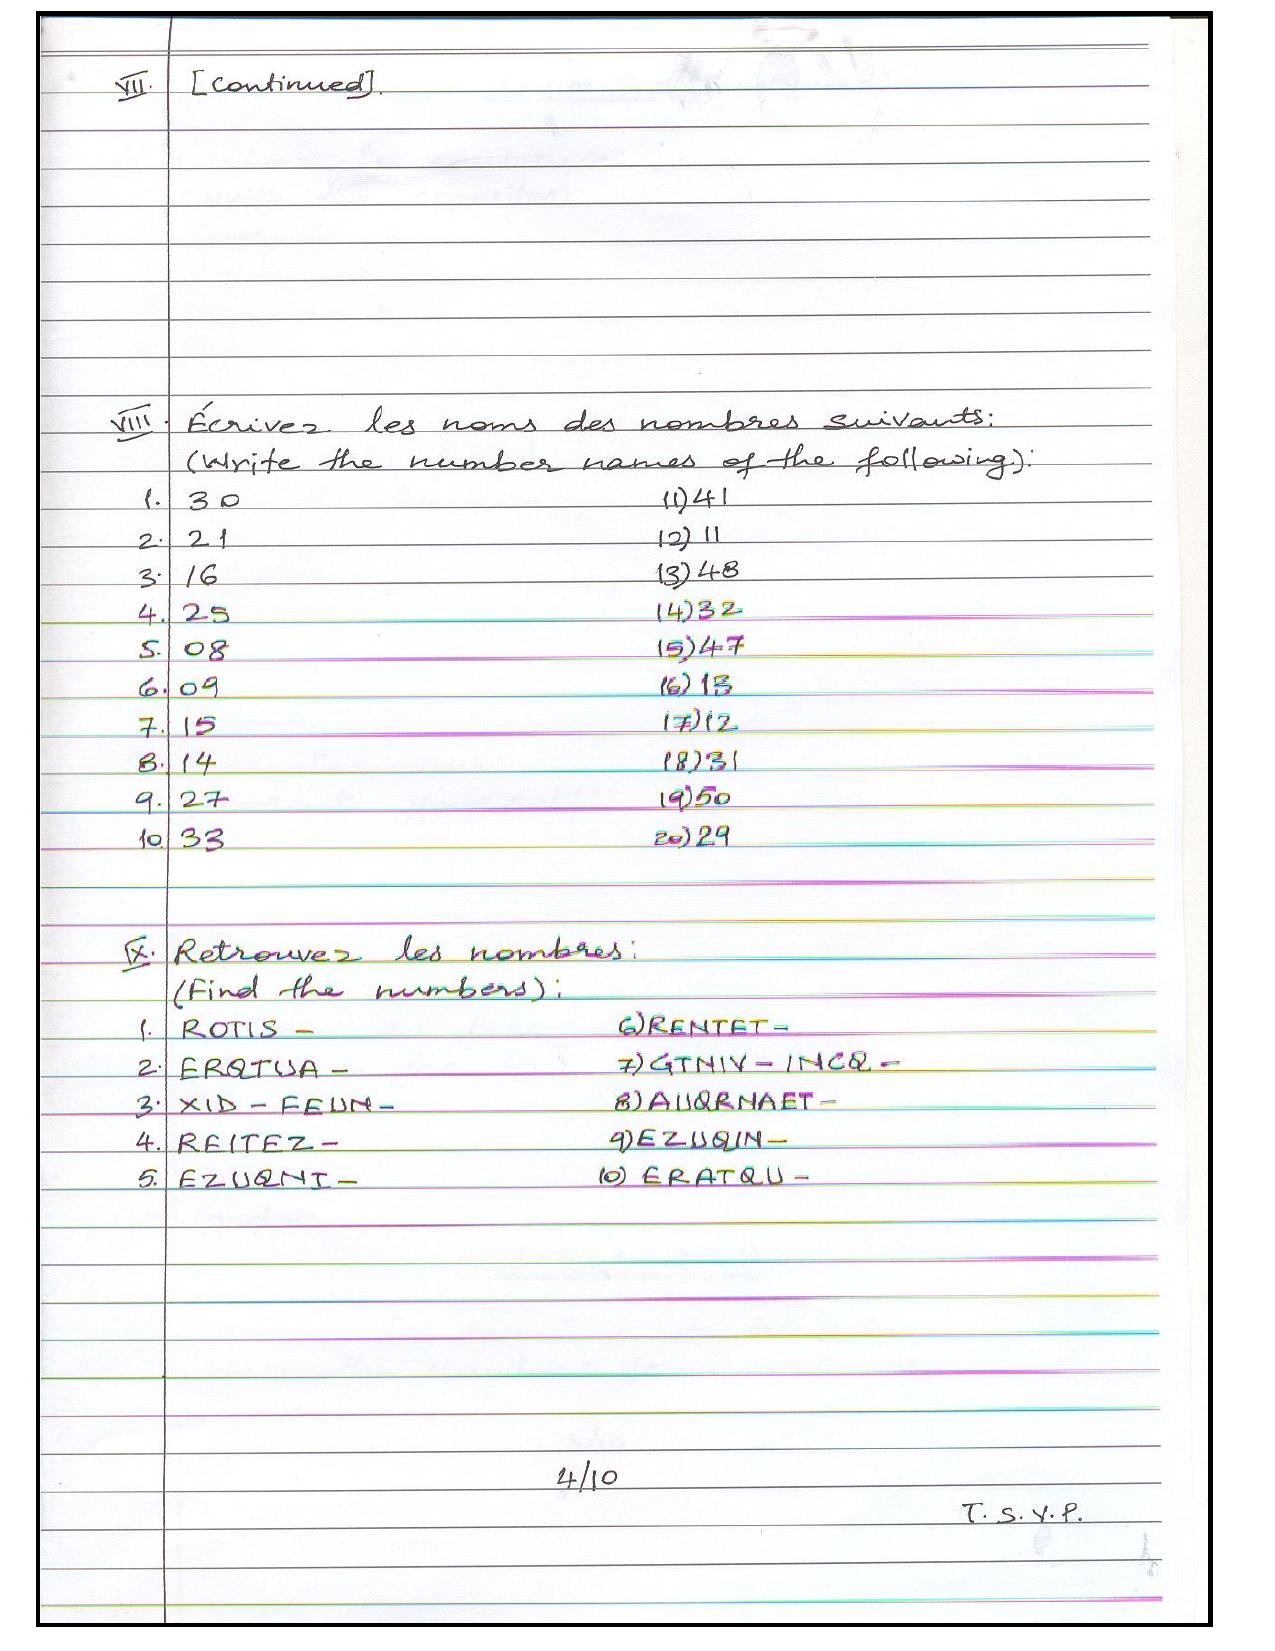 VII. [Continued].
VIII. Écrivez les noms des nombres suivants:
(Write the number names of the following):
1. 30 (11) 41
2. 21 (12) 11
3. 16 (13) 48
4. 25 (14) 32
5. 08 (15) 47
6. 09 (16) 13
7. 15 (17) 12
8. 14 (18) 31
9. 27 (19) 50
10. 33 20) 29
IX. Retrouvez les nombres:
(Find the numbers):
1. ROTIS - 6) RENTET -
2. ERQTUA - 7) GTNIV - INCQ -
3. XID - FEUN - 8) AUQRNAET -
4. REITEZ - 9) EZUQIN -
5. EZUQNI - 10) ERATQU -
4/10
T. S. V. P.